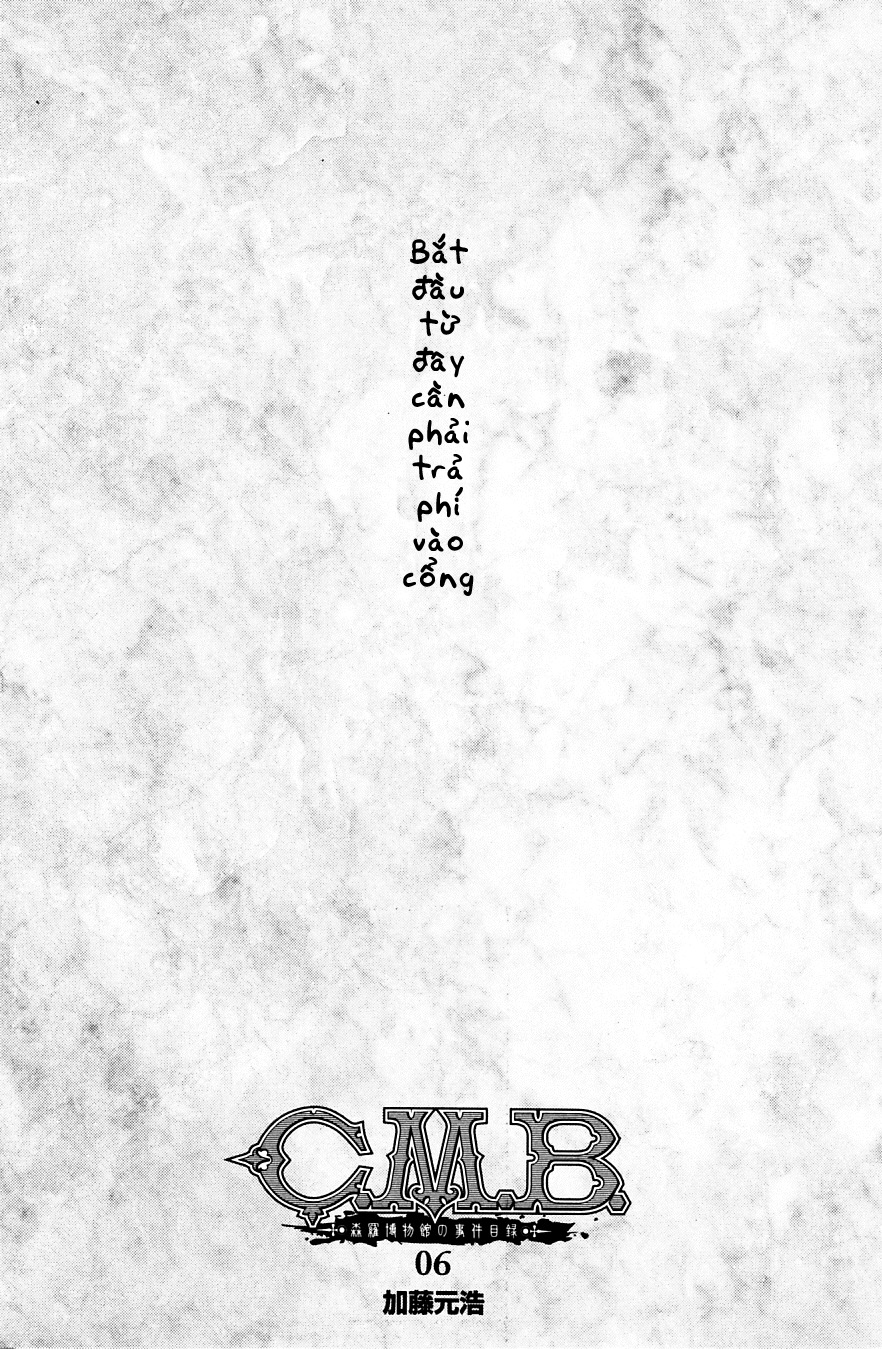 Bắt
đầu
từ
đây
cần
phải
trả
phí
vào
cổng
C.M.B.
森羅博物館の事件目録
06
加藤元浩